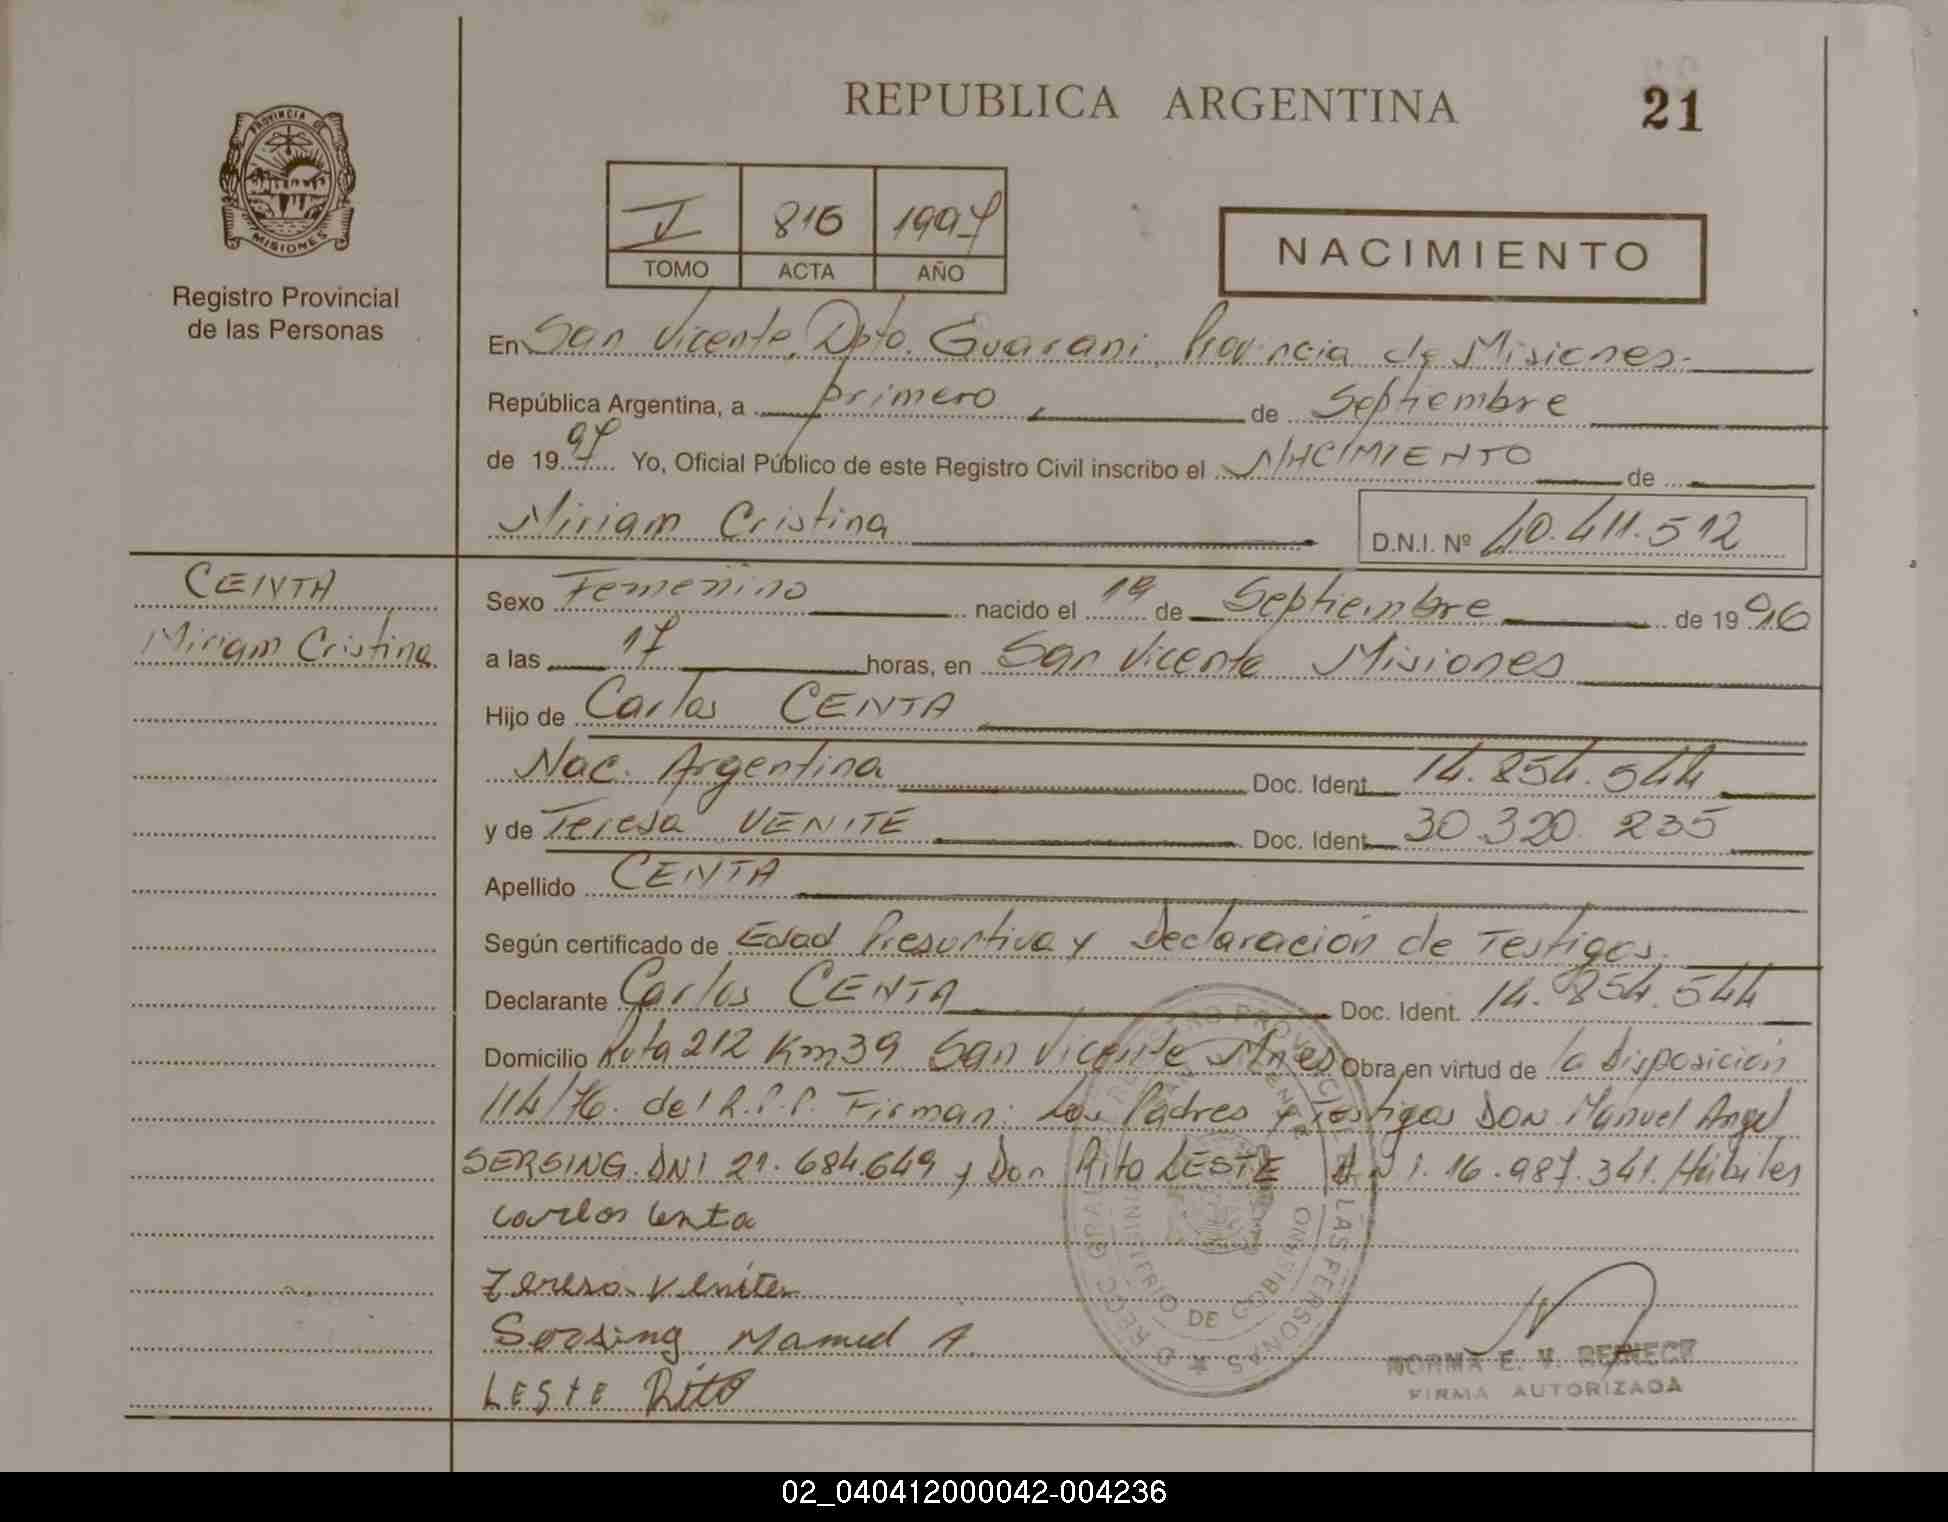 REPUBLICA ARGENTINA
21
PROVINCIA DE
MISIONES
Registro Provincial
de las Personas
I 816 1997
TOMO ACTA AÑO
NACIMIENTO
En San Vicente, Dpto. Guarani, Provincia de Misiones.
República Argentina, a primero de Septiembre
de 1997 Yo, Oficial Público de este Registro Civil inscribo el NACIMIENTO de
Miriam Cristina D.N.I. Nº 40.411.512
CENTA
Miriam Cristina
Sexo Femenino nacido el de Septiembre de 1996
a las 17 horas, en San Vicente Misiones
Hijo de Carlos CENTA
Nac. Argentina Doc. Ident. 14.854.544
y de Teresa VENITE Doc. Ident. 30.320.235
Apellido CENTA
Según certificado de Edad Presuntiva y Declaración de Testigos.
Declarante Carlos CENTA Doc. Ident. 14.854.544
Domicilio Ruta 212 Km 39 San Vicente Mnes Obra en virtud de la Disposición
114/76. del R.P.P. Firman: Los Padres y Testigos DON Manuel Angel
SERSING. DNI 21.684.649 y Don Rito LESTE DNI. 16.987.341. Hábiles
Carlos Centa
Teresa Venite
Sersing Manuel A.
LESTE Rito
MINISTERIO DE GOBIERNO
LAS PERSONAS
NORMA E. V. REINECK
FIRMA AUTORIZADA
02_040412000042-004236